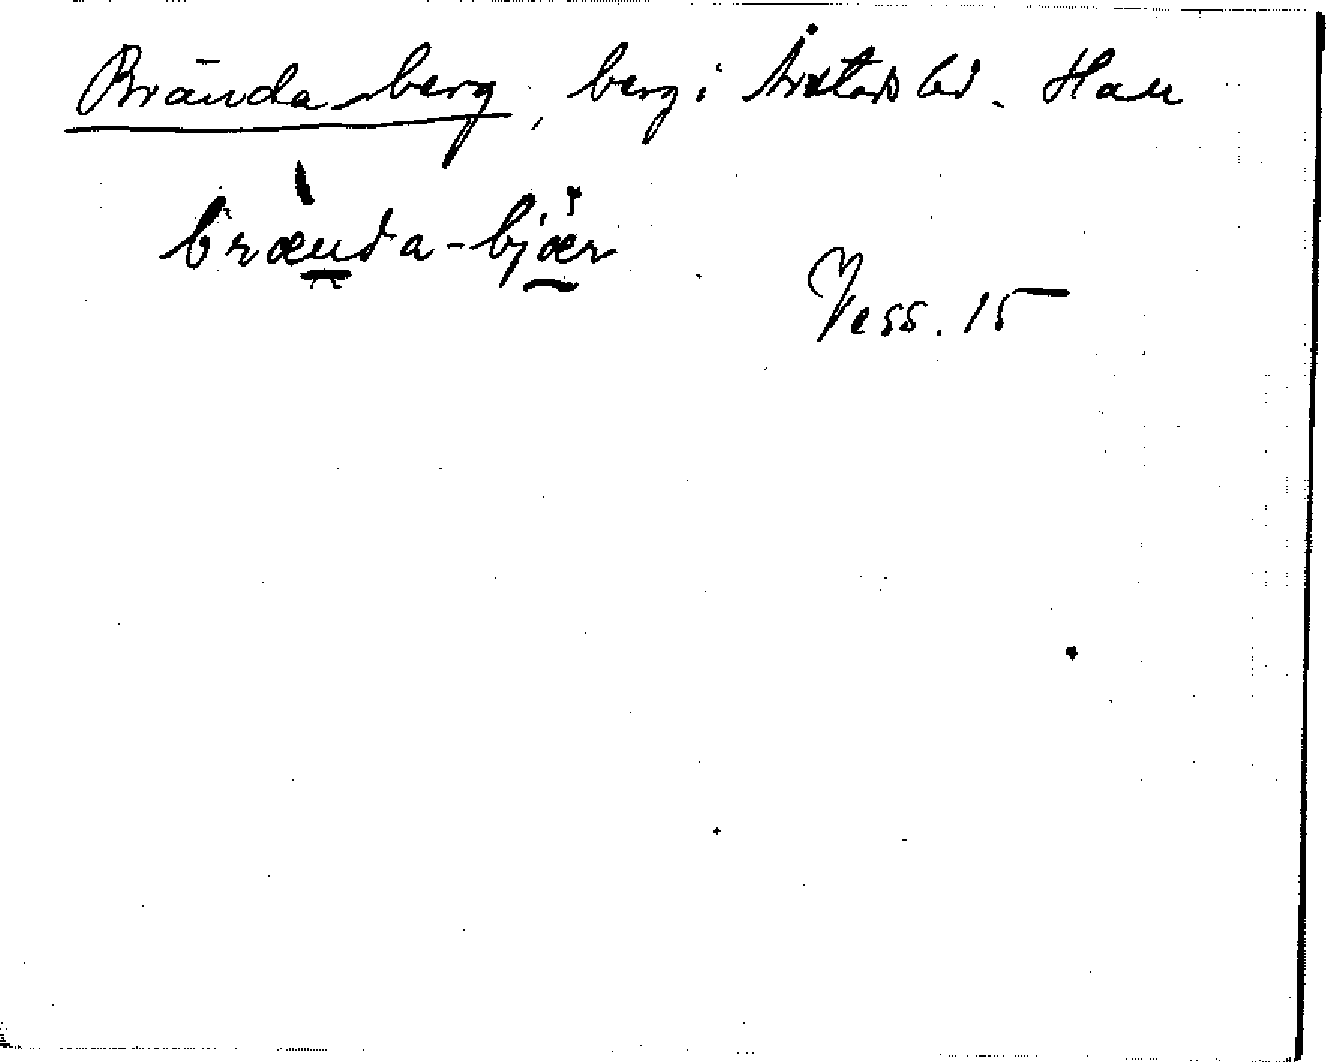 Brändasberg, berg i Årstads hd. Hall
brænda-bjær
Vess. 15